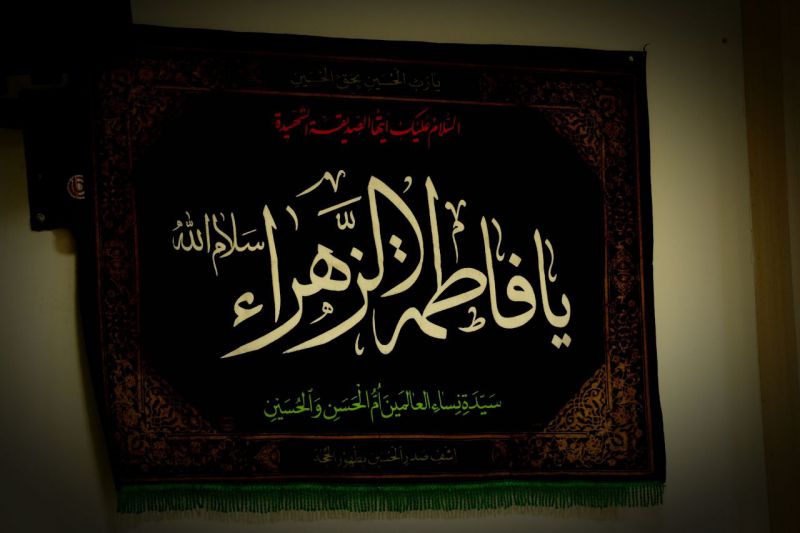 يا رب الحسين بحق الحسين
السلام عليك ايتها الصديقة الشهيدة
يا فاطمة الزهراء سلام الله
سَيِّدَةِ نِساءِ العالمينَ أُمُّ الحَسَنِ وَالحُسَيْنِ
اشف صدر الحسين بظهور الحجة